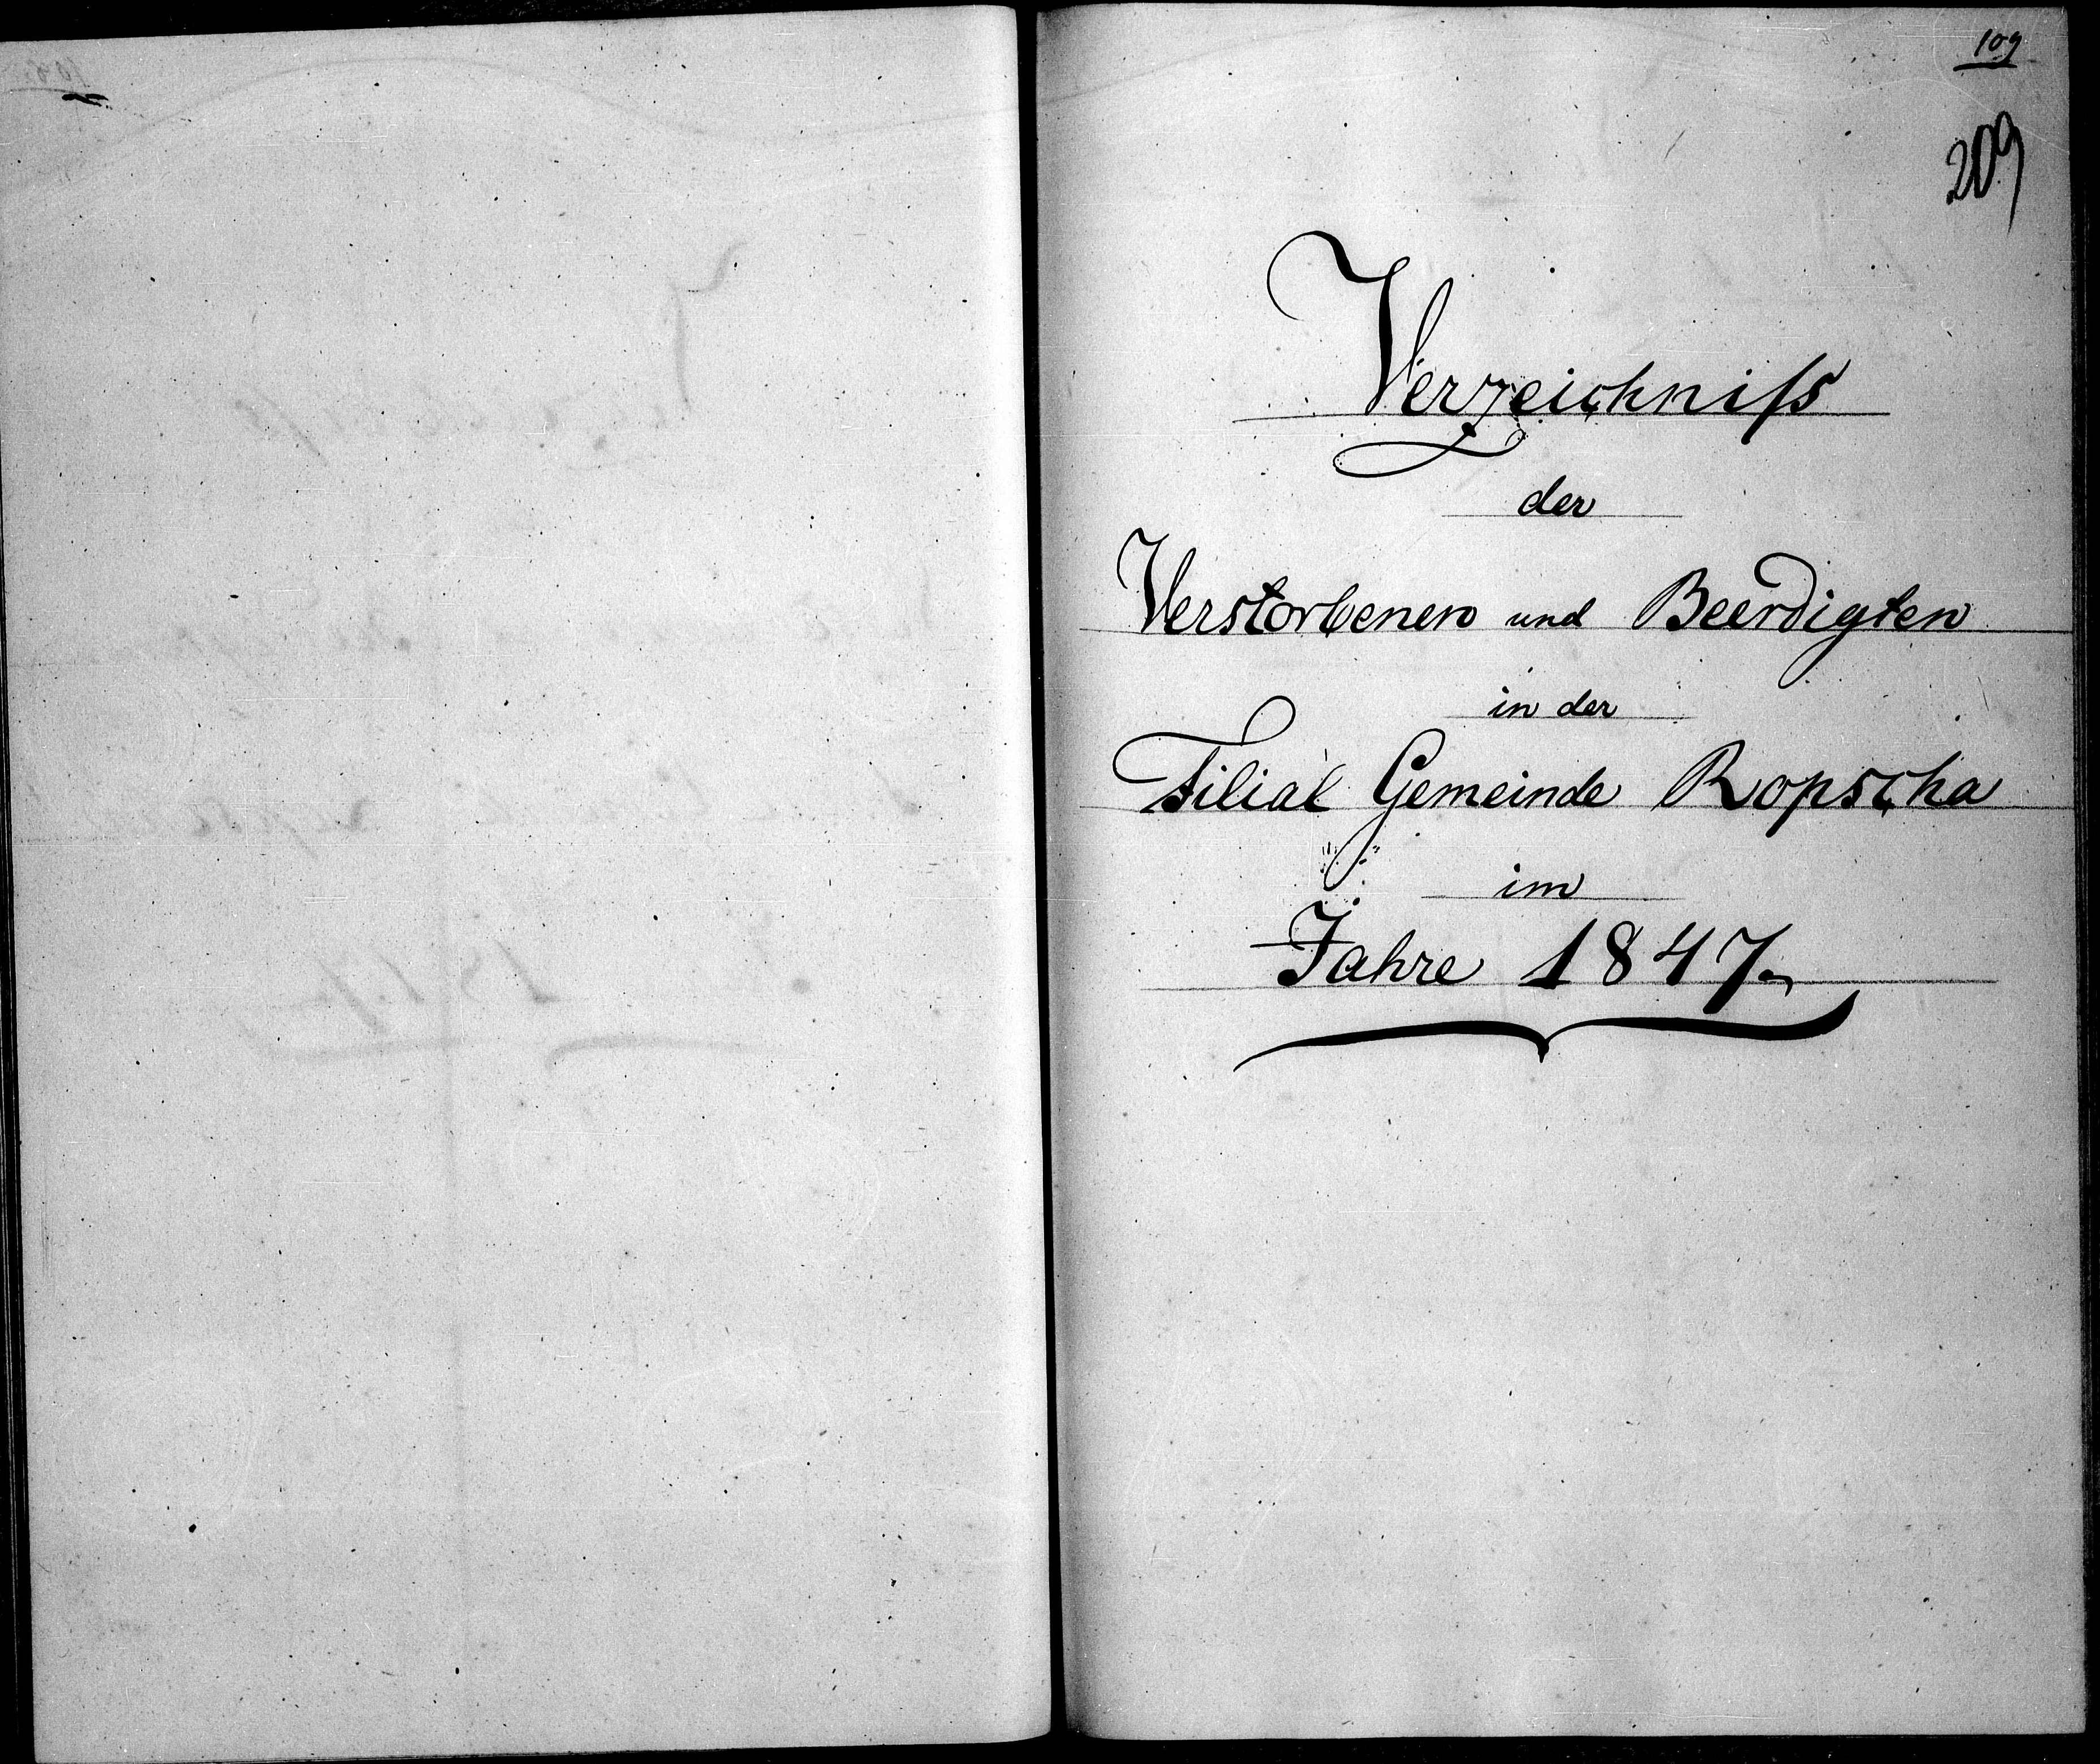 109
209
Verzeichniſs
der
Verstorbenen und Beerdigten
in der
Filial Gemeinde Ropscha
im
Jahre 1847.